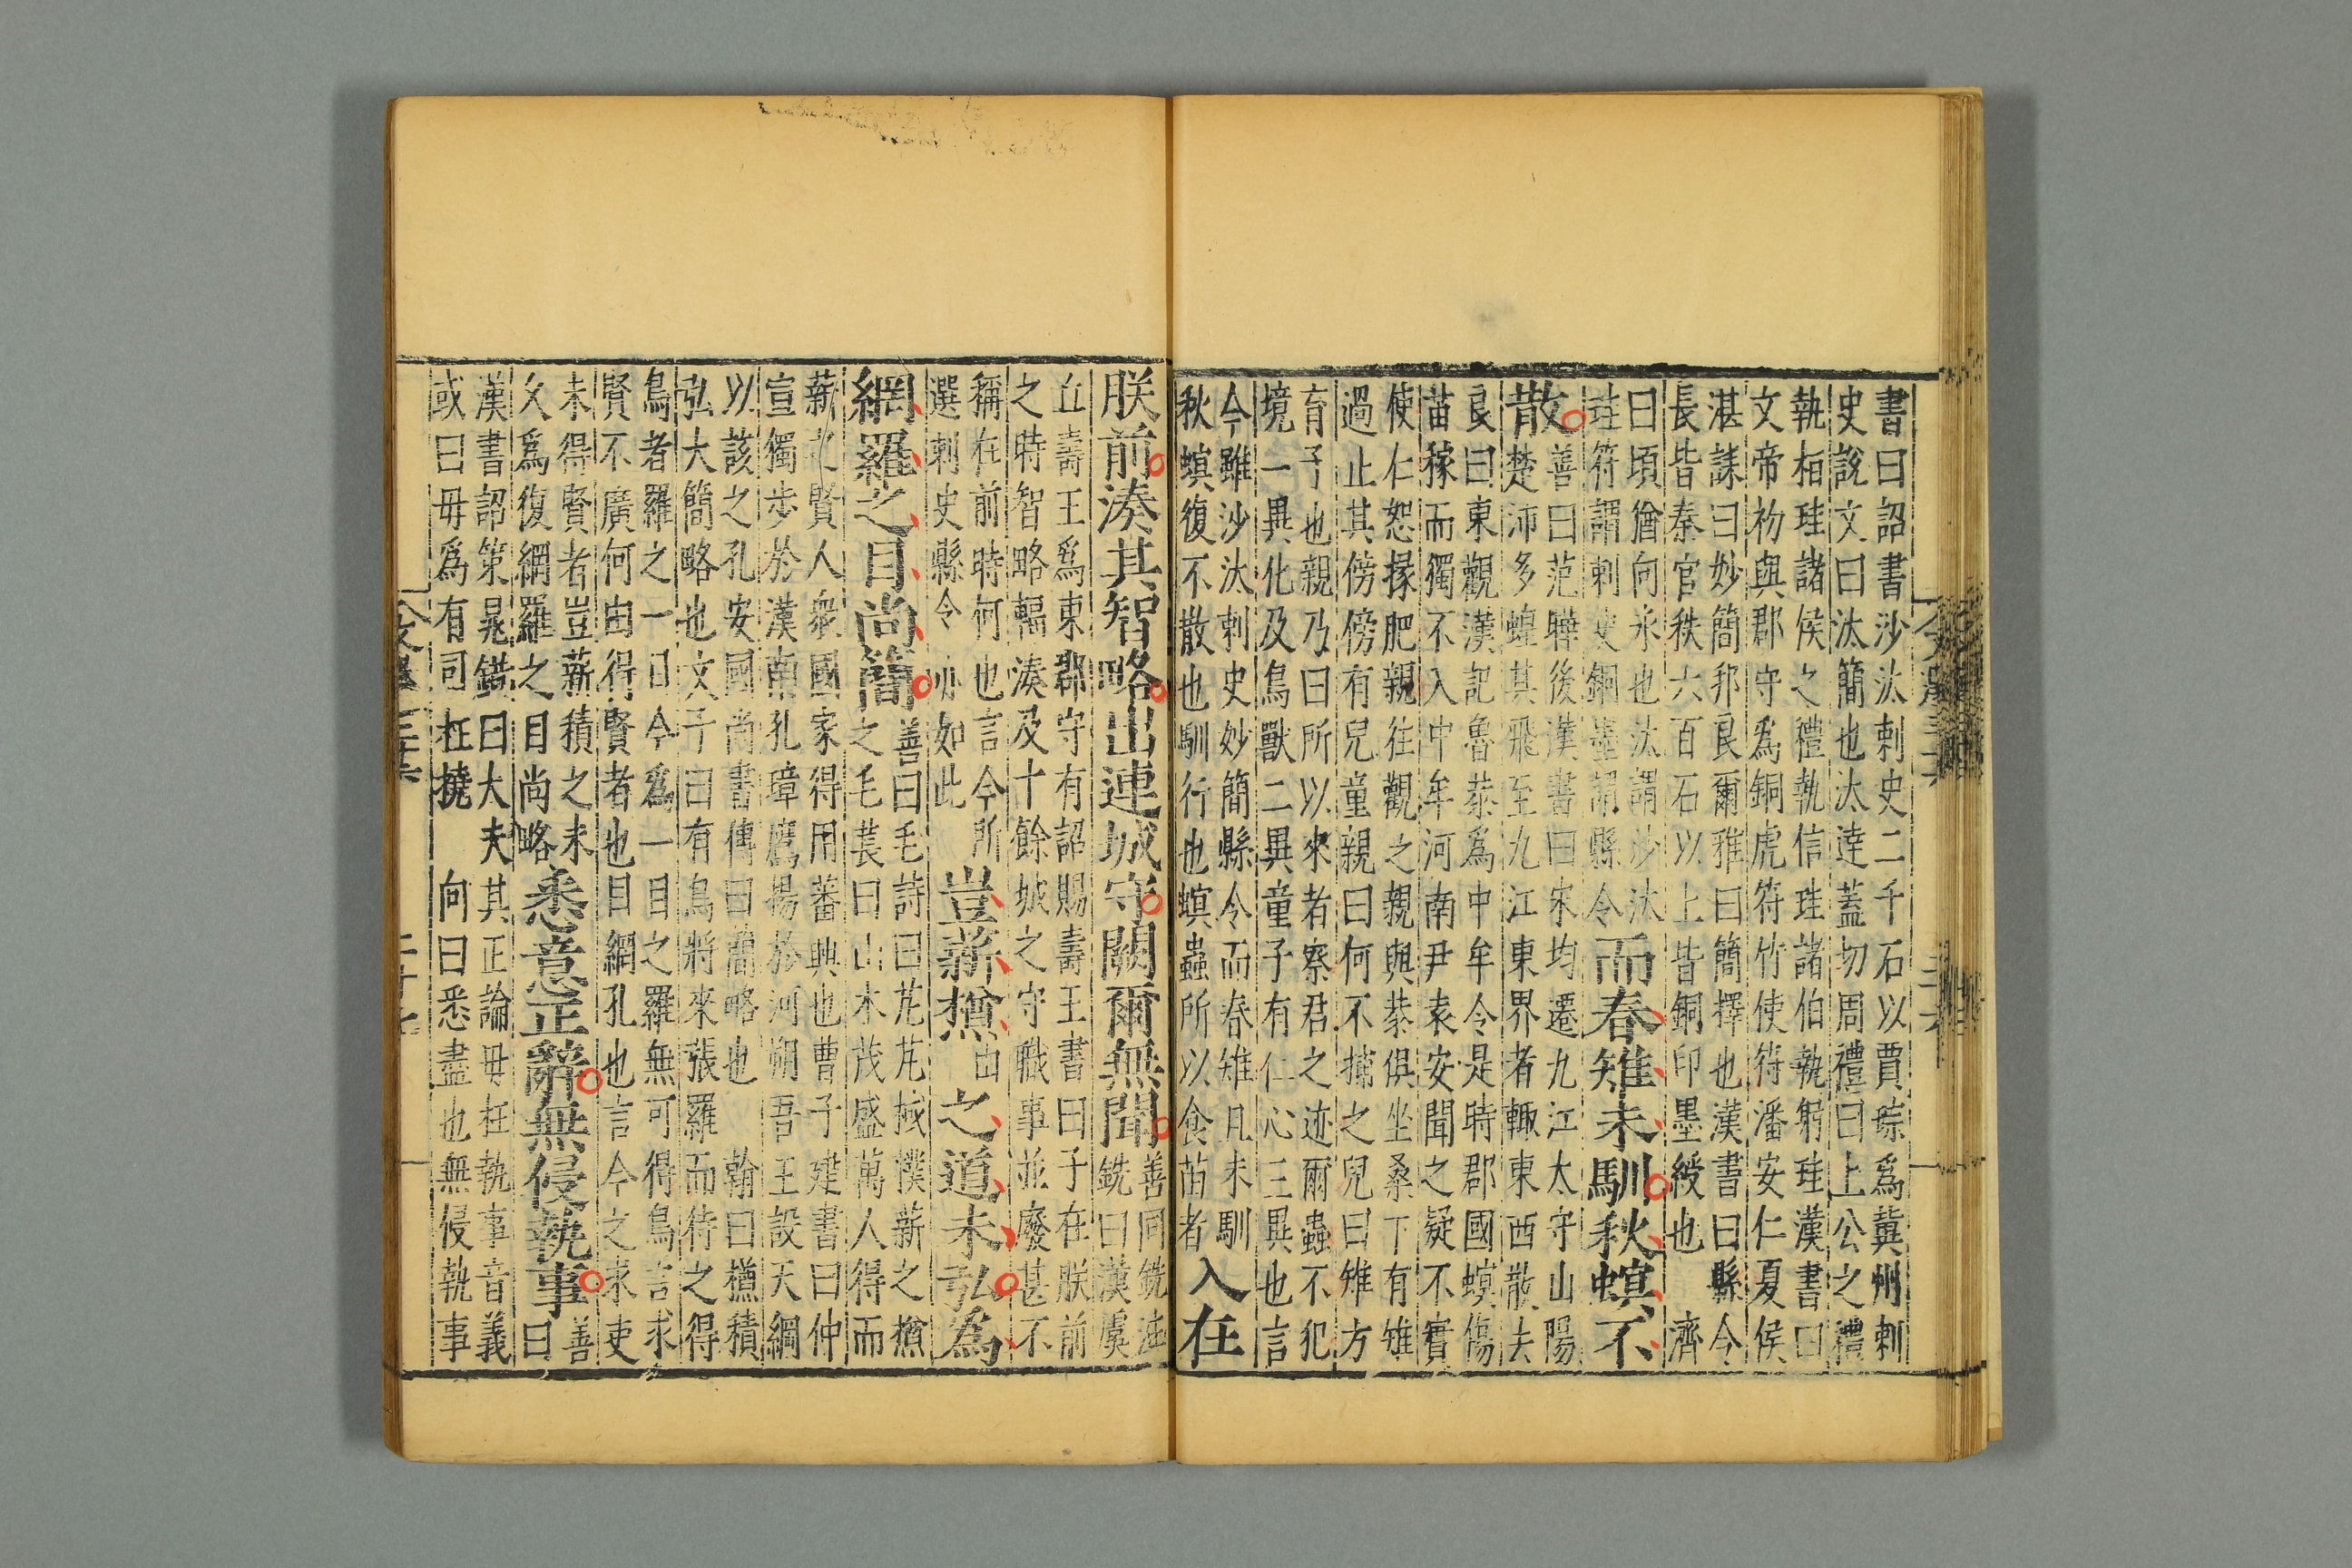 書曰詔書沙汰刺史二千石以賈琮爲冀州刺
史說文曰汰簡也汰達蓋切周禮曰上公之禮
執桓珪諸侯之禮執信珪諸伯執躬珪漢書曰
文帝初與郡守爲銅虎符竹使符潘安仁夏侯
湛誄曰妙簡邦良爾雅曰簡擇也漢書曰縣令
長皆秦官秩六百石以上皆銅印墨綬也 濟
曰頃猶向永也汰謂沙汰
珪符謂刺史銅墨謂縣令
而春雉未馴秋螟不
散
善曰范曄後漢書曰宋均遷九江太守山陽
楚沛多蝗其飛至九江東界者輒東西散去
良曰東觀漢記魯恭爲中牟令是時郡國螟傷
苗稼而獨不入中牟河南尹袁安聞之疑不實
使仁恕掾肥親往觀之親與恭俱坐桑下有雉
過止其傍傍有兒童親曰何不捕之兒曰雉方
育子也親乃曰所以來者察君之迹爾蟲不犯
境一異化及鳥獸二異童子有仁心三異也言
今雖沙汰刺史妙簡縣令而春雉凡未馴
秋螟復不散也馴行也螟蟲所以食苗者
入在
朕前湊其智略出連城守闕爾無聞
善同銑注
銑曰漢虞
丘壽王爲東郡守有詔賜壽王書曰子在朕前
之時智略輻湊及十餘城之守職事並廢甚不
稱在前時何也言今所出
選刺史縣令亦如此
豈薪槱之道未弘爲
網羅之目尚簡
善曰毛詩曰芃芃棫樸薪之槱
之毛萇曰山木茂盛萬人得而
薪之賢人衆國家得用蕃興也曹子建書曰仲
宣獨步於漢南孔璋鷹揚於河朔吾王設天網
以該之孔安國尚書傳曰簡略也 翰曰槱積
弘大簡略也文子曰有鳥將來張羅而待之得
鳥者羅之一目今爲一目之羅無可得鳥言求
賢不廣何由得賢者也目網孔也言今之求吏
未得賢者豈薪積之未
又爲復網羅之目尚略
悉意正辭無侵執事
善
曰
漢書詔策晁錯曰大夫其正論毋枉執事音義
或曰毋爲有司枉撓 向曰悉盡也無侵執事